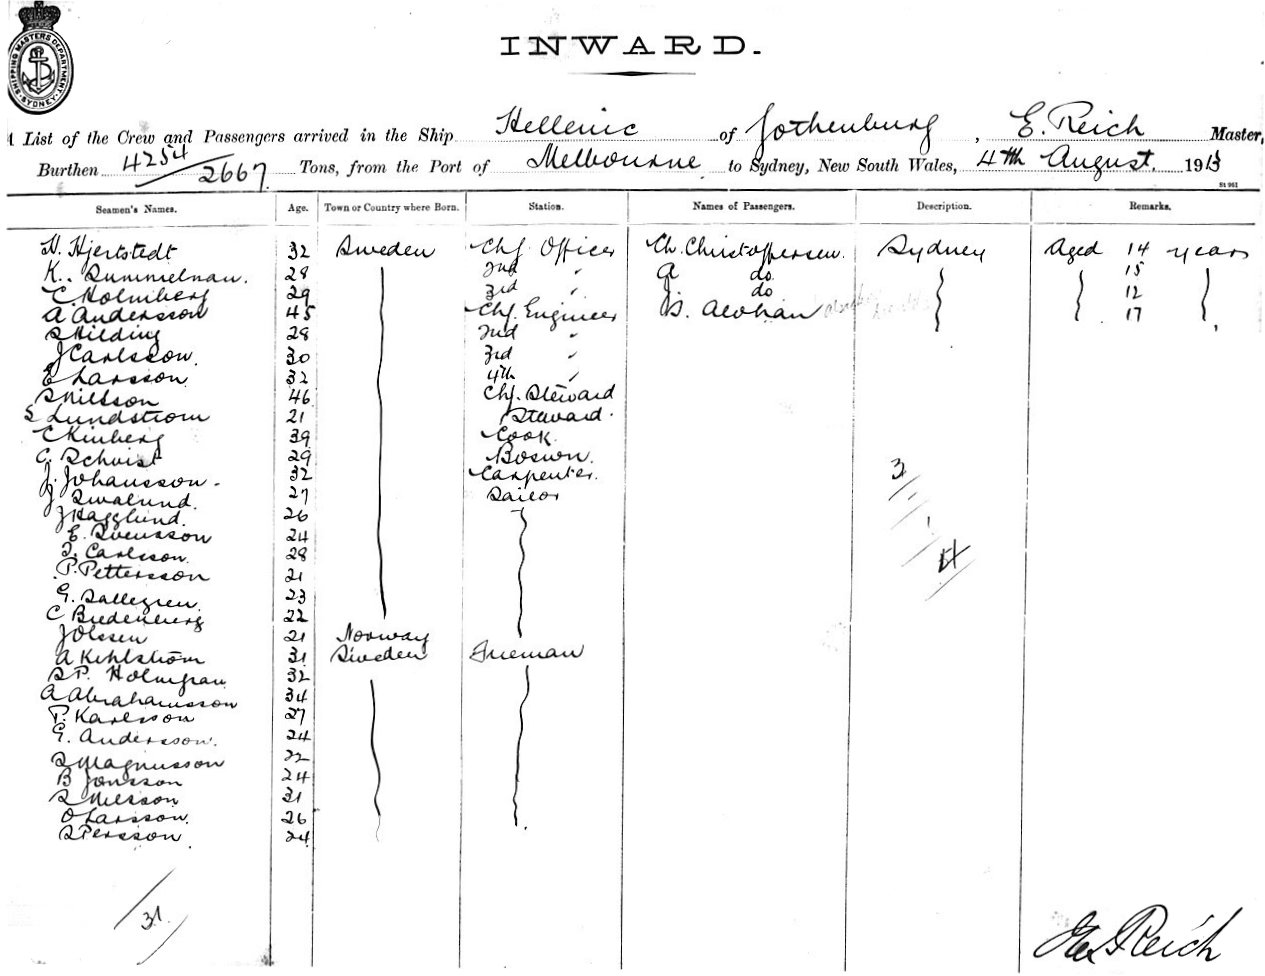 SHIPPING MASTERS DEPARTMENT
SYDNEY
INWARD.
A List of the Crew and Passengers arrived in the Ship Hellenic of Gothenburg, E. Reich Master,
Burthen 4254/2667 Tons, from the Port of Melbourne to Sydney, New South Wales, 4th August. 1913
St 961
Seamen's Names. Age. Town or Country where Born. Station. Names of Passengers. Description. Remarks.
H. Hjertstedt 32 Sweden Chf Officer Ch. Christoffersen. Sydney Aged 14 years
K. Dummelman. 28 2nd " A do 15
C Holmberg 29 3rd " J. do 12
A Andersson 45 Chf. Engineer B. 17
S Hilding 28 2nd "
J Carlsson. 30 3rd "
E Larsson 32 4th "
S Nilsson 46 Chf. Steward
E Lundstrom 21 Steward.
C Kinberg 39 Cook.
C. 29 Boswn.
J. Johansson. 32 Carpenter.
J Swalund. 27 Sailor
J Hagglund. 26
E. Svensson 24
J. Carlsson 28
P. Pettersson 21
G. Sallegren. 23
C Bredenberg 22
J Olssen 21 Norway
A Kihlström 31 Sweden Fireman
S P. Holmgran 32
A Abrahamsson 34
P. Karlsson 27
G. Andersson. 24
S Magnusson 22
B Jonsson 24
S Nilsson 31
O Larsson. 26
S Persson 24
3
1
4
31
E. Reich